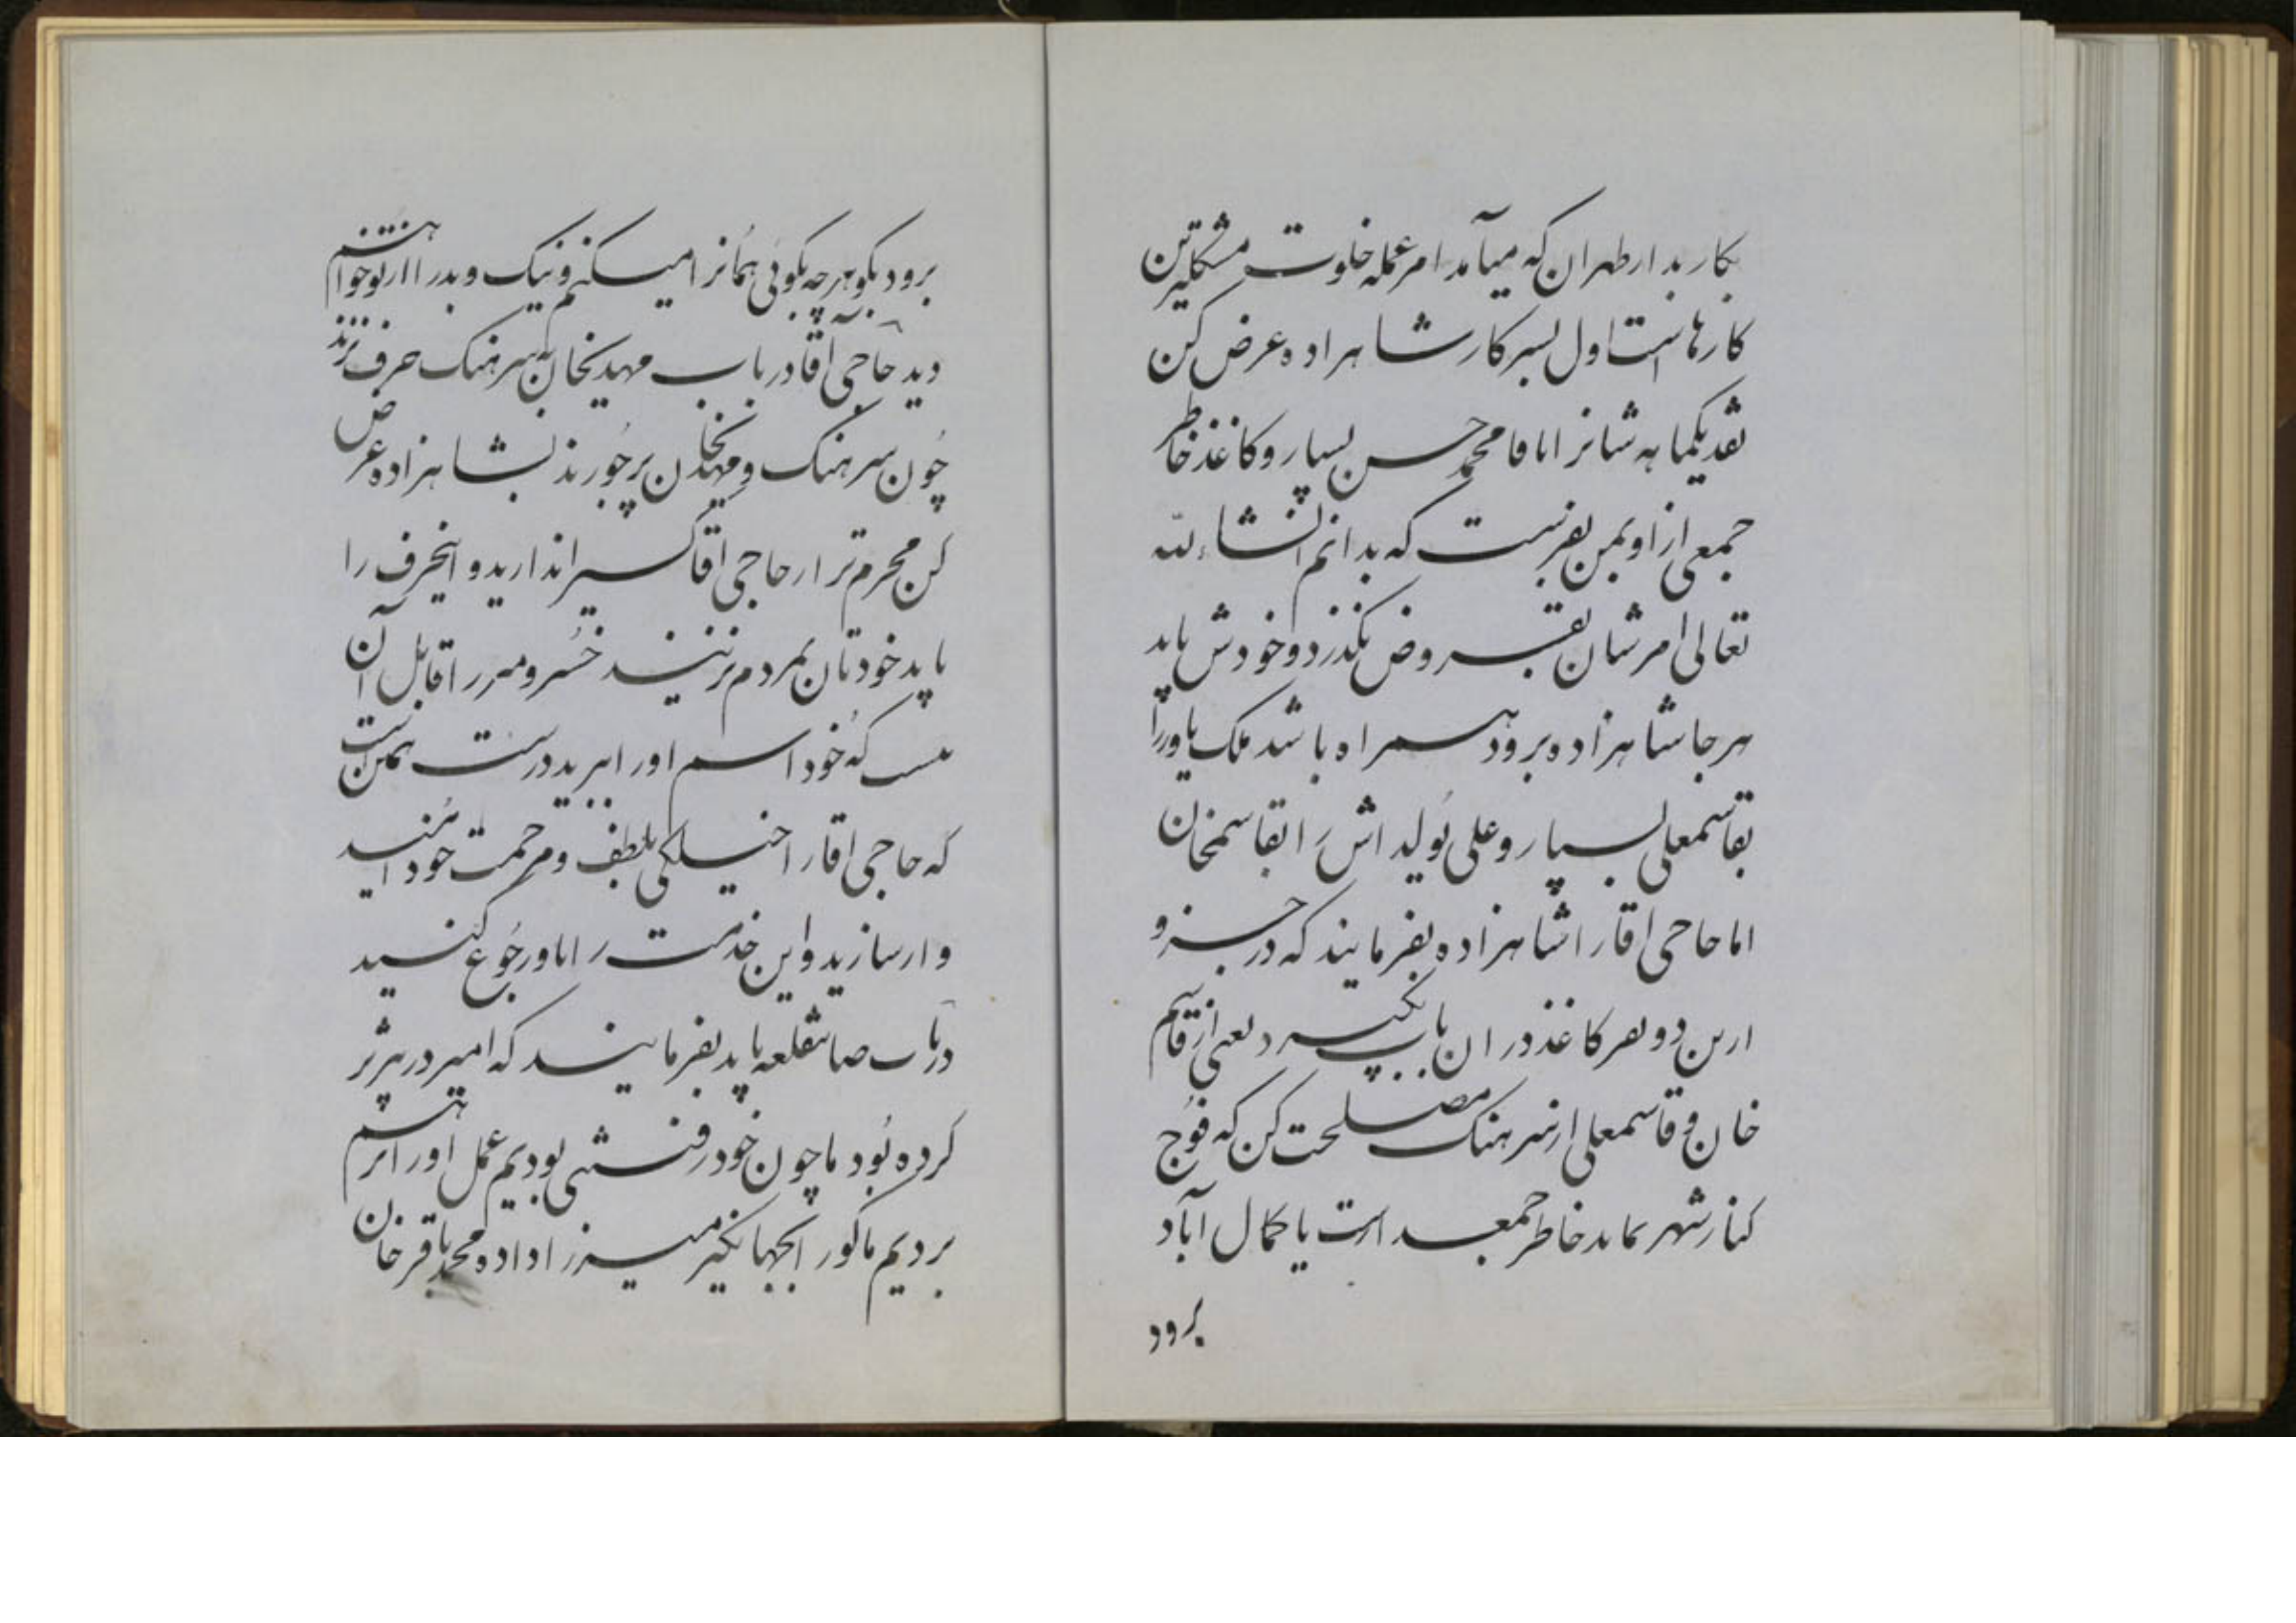 بکار بد از طهران که میآمد امر عمله خلوت مشکلترین
کارهاست اول بسرکار شاهزاده عرض کن
نقد یکماهه شانرا باقا محمد حسن بسپار و کاغذ خاطر
جمعی از او بمن بفرست که بدانم انشاءالله
تعالی امرشان بقروض نگذرد و خودش باید
هر جا شاهزاده برود همراه باشد ملک یاور را
بقاسمعلی بسپار و علی را بقاسمخان
اما حاجی اقا را شاهزاده بفرمایند که در جزو
ازین دو نفر کاغذ در ان باب بگیرد یعنی از قاسم
خان و قاسمعلی از سرهنگ مصلحت کن که فوج
کنار شهر بماند خاطر جمعتر است یا کمال آباد
برود
برود بگو هرچه بگوئی همانرا میکنم و نیک و بد را از تو خواهم
دید حاجی آقا در باب مهدیخان به سرهنگ حرف نزند
چون سرهنگ و مهدیخان بشاهزاده عرض
کن محرم تر از حاجی اقا کسیرا ندارید و اینحرف را
باید خودتان بمردم بزنید خسرو را قابل آن
که خود اسم او را ببرید درست همین است
که حاجی اقا را خیلی بلطف و مرحمت خود
وار سازید و این خدمت را باو رجوع کنید
در باب قلعه باید بفرمایند که امیر در
کرده بود ما چون خود رفتنی بودیم عمل او را بر هم
بردیم ماکو را بجهانگیر میرزا داده محمد باقر خان